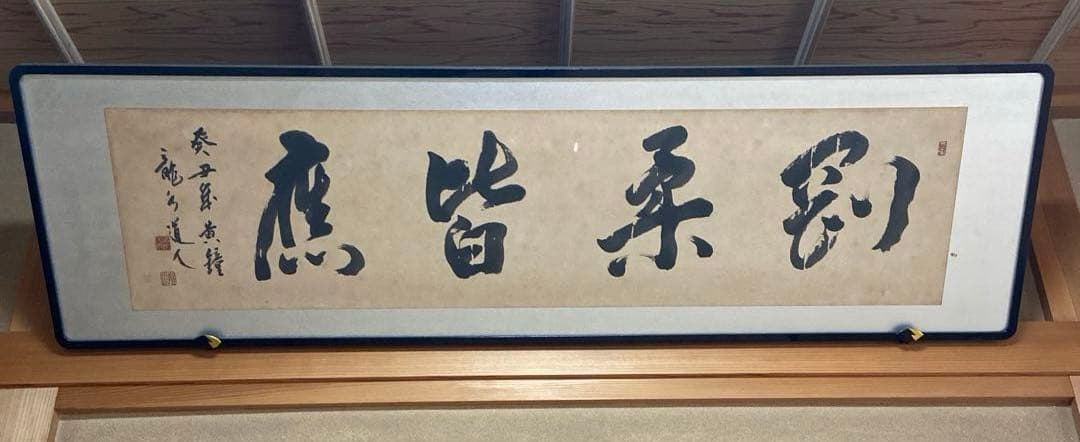 剛柔皆應
癸丑歳黄鐘
龍公道人